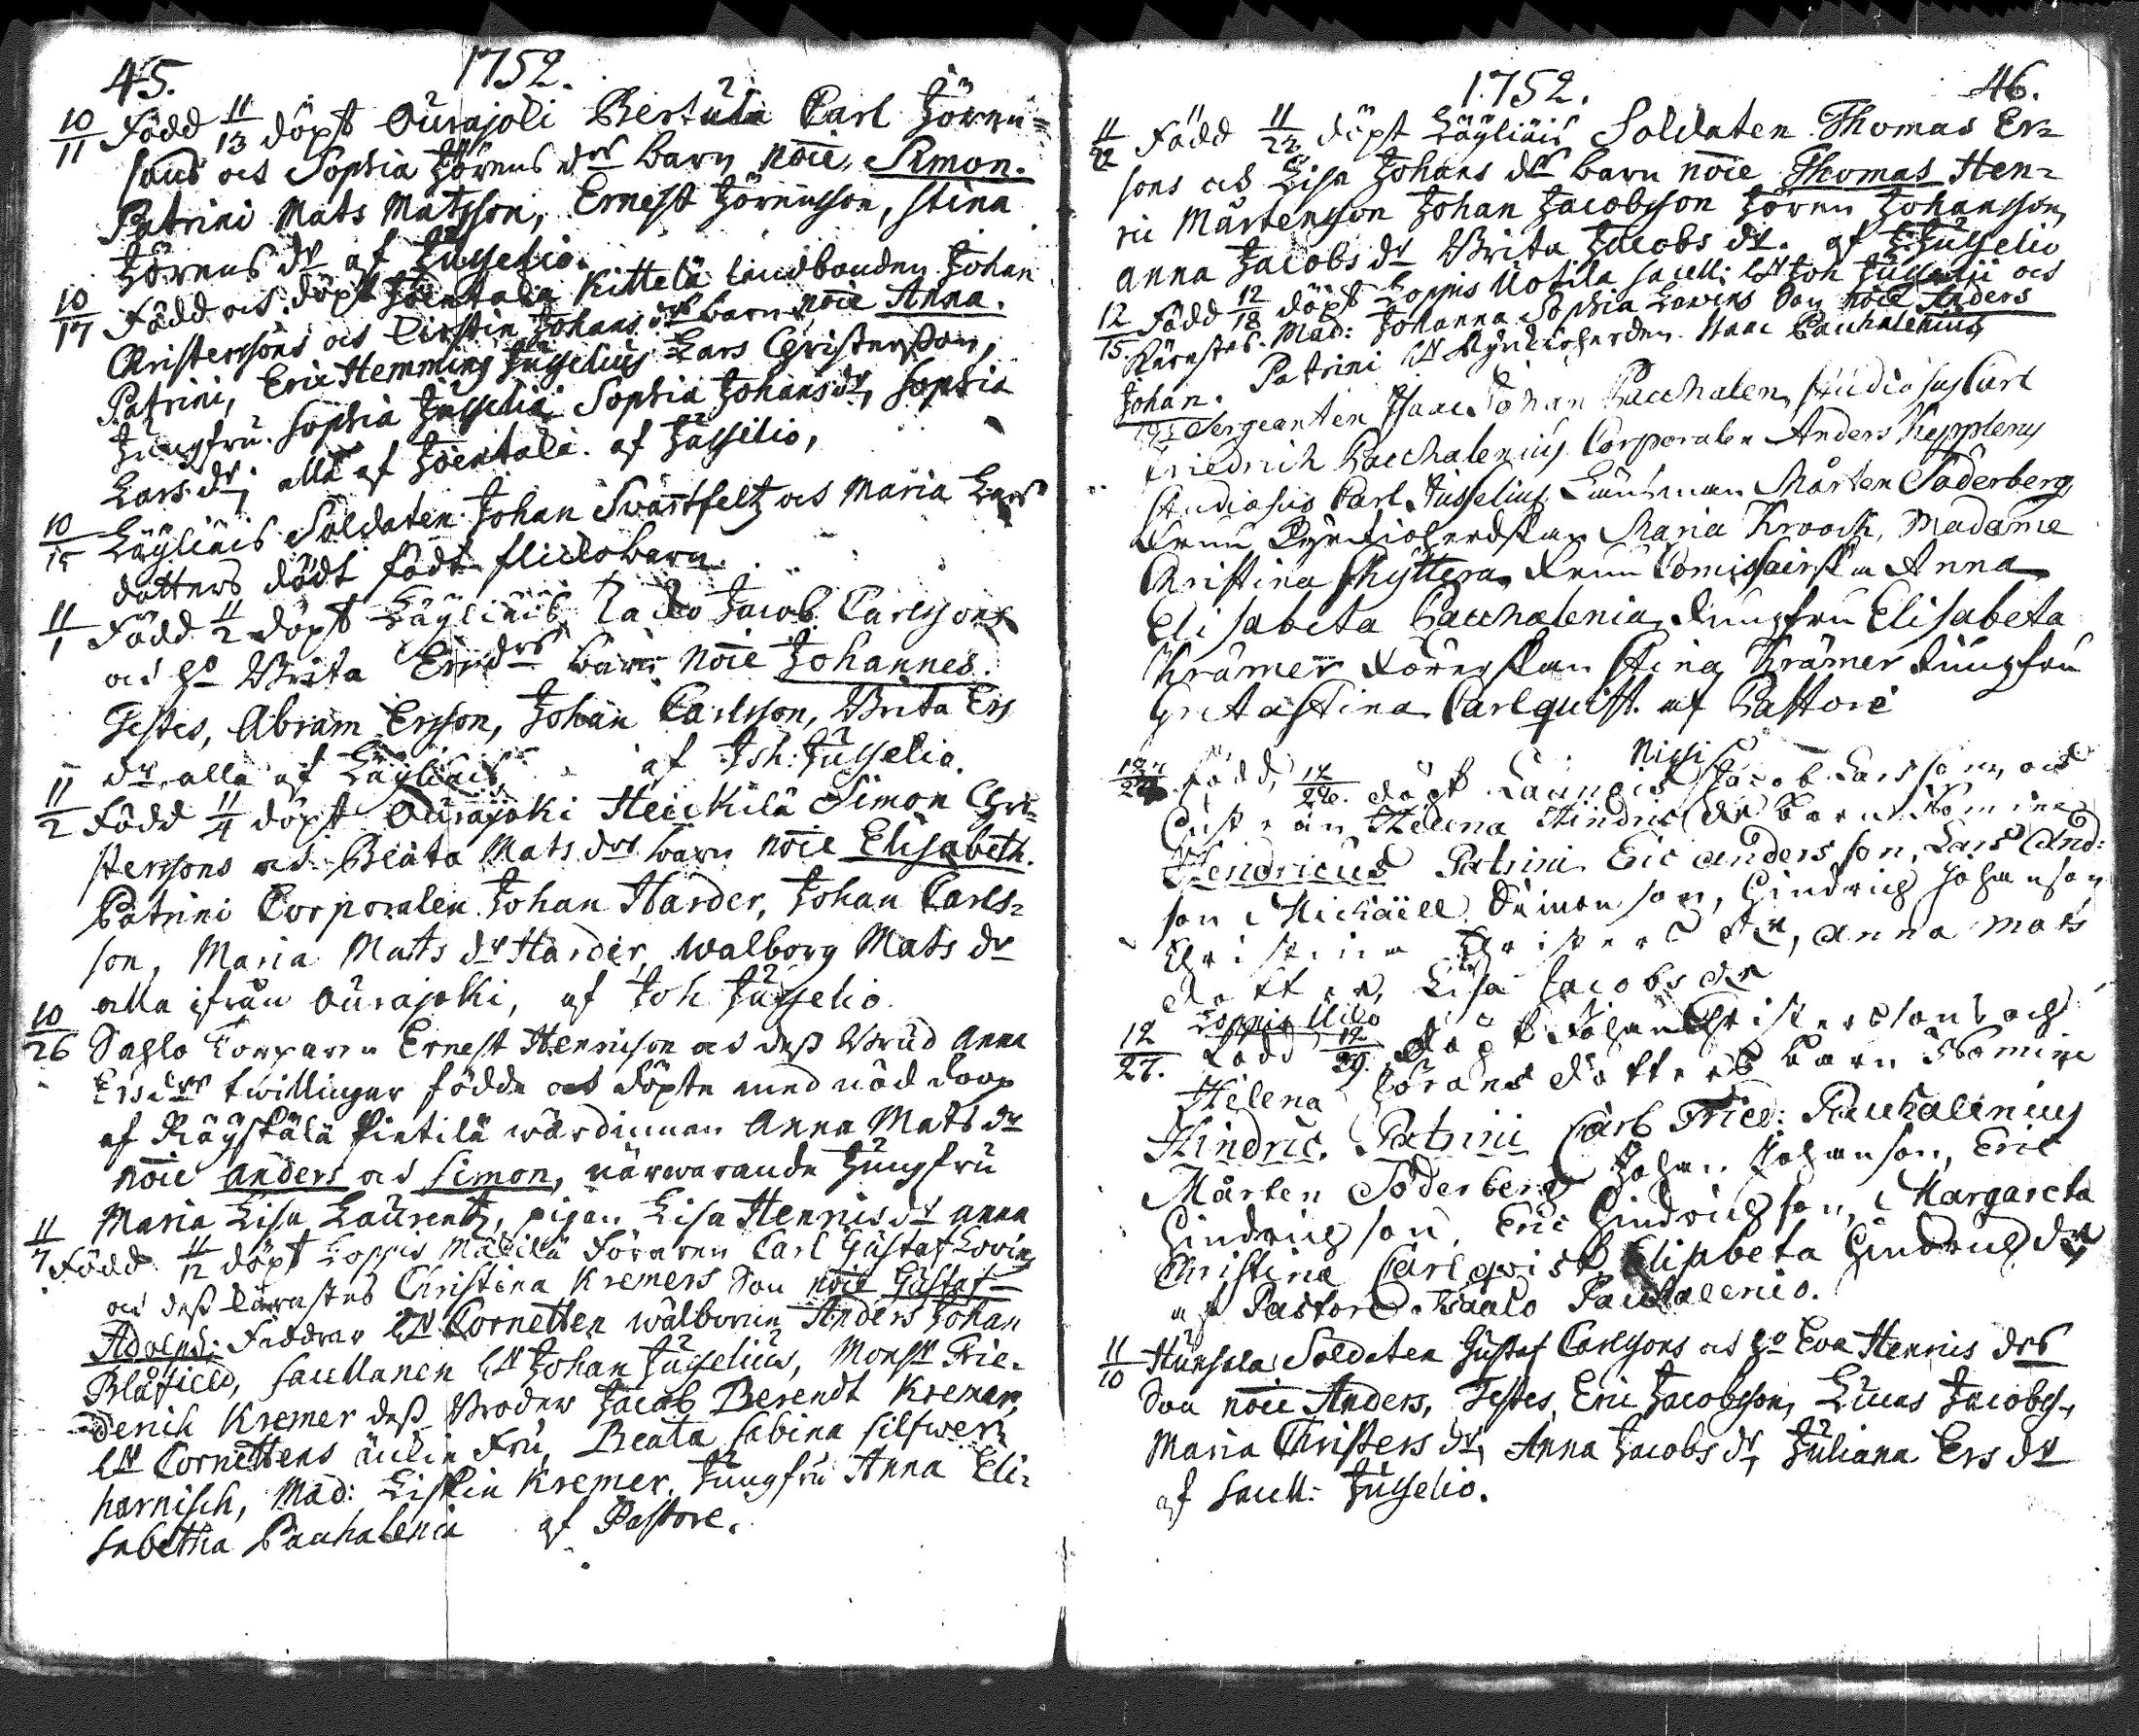 45. 1752.
10/11 Född 11/13 döpt Ourajoki Bertula Carl Jören=
sons och Sophia Jörens drs barn noie Simon.
Patrini Mats Matsson, Ernest Jörensson, Stina
Jörens dr af Jusselio.
10/17 Född och döpt Joentaka Kittelä landbonden Johan
Christerssons och Cirstin Johans drs barn noie Anna.
Patrini, Eric Hemming Jusselius Lars Christersson,
Jungfru Sophia Jusselia Sophia Johansdr, Sophia
Lars dr, alla af Joentaka. af Jusselio,
10/15 Läyliäis Soldaten Johan Svartfeltz och Maria Lars
dotters dödt födt flickobarn
11/1 Född 11/2 döpt Läyliäis Jacob Carlssons
och ho Brita Ericdrs barn noie Johannes.
Testes, Abram Ersson, Johan Carlsson, Brita Ers
dr alla af Läyliäis af Joh: Jusselio.
11/2 Född 11/4 döpt Ourajoki Heickilä Simon Chri-
sterssons och Beata Mats drs barn noie Elisabeth.
Patrini Corporalen Johan Harder, Johan Carls=
son, Maria Mats dr Harder, Walborg Mats dr
alla ifrån Ourajoki, af Joh Jusselio.
10/26 Sahlo Torparen Ernest Henricson och dess Brud Anna
Ers drs twillingar födde och döpte med nöd doop
af Räyskälä Pietilä wärdinnan Anna Mats dr
noie Anders och Simon, närwarande Jungfru
Maria Lisa Laurentz, pigan Lisa Henrics dr Anna
11/7 Född 11/12 döpt Loppis Föraren Carl Gustaf
och dess käraste Christina Kremers Son noie Gustaf
Adolph. Faddrar Hr Cornetten wälborne Anders Johan
Blåfield, Sacellanen Hr Johan Jusselius, Monsr Frie-
derich Kremer dess Broder Jacob Berendt Kremer,
Hr Cornettens Fru, Beata Sabina Silfwer=
harnisch, Mad: Liskin Kremer, Jungfru Anna Eli-
sabetha Pauchalenia af Pastore.
1752. 46.
11/22 Född 11/22 döpt Läyliäis Soldaten Thomas Er=
sons och Lisa Johans drs barn noie Thomas Hen=
ric Mårtensson Johan Jacobsson Jören Johansson,
Anna Jacobs dr Brita Jacobs dr. af Jusselio
12/15 Född 12/18 döpt Loppis Uotila Sacell: Hr Joh Jusselii och
Kärestes Mad: Johanna Sophia Son noie Anders
Johan. Patrini Hr Kyrckioherden Isaac Pacchalenius,
Sergeanten Isaac Johan Pacchalen, Studiosus Carl
Friedrich Pacchalenius Corporalen Anders Kepplerus
Studiosus Carl Jusselius Länsman Mårten Söderberg
Frun Kyrckioherdskan Maria Kroock, Madame
Christina Frun Comissairskan Anna
Elisabeta Pacchalenia, Jungfru Elisabeta
Krämer Förerskan Stina Krämer Jungfru
Greta Stina Carlquist. af Pastore
Född, döpt Launois Nissi Jacob Larssons, och
Hustruns Helena Hindrics dr barn Nomine
Hendricus Patrini Eric Andersson, Lars And:
son Mickaell Simonson, Hindrich Johanson
Christina Christers dr, Anna Mats
dotter, Lisa Jacobs dr
12/27. Född 12/29. döpt Johan Christerssons och
Helena Görans dotters barn Nomine
Hindric. Patrini Carl Fried: Pauchalenius
Mårten Söderberg Johan Johanson, Eric
Hindrichson, Eric Hindrichson, Margareta
Christina Carlqvist Elisabeta Hindrichs dr
af Pastore Isaaco Pauchalenio.
11/10 Hunsala Soldaten Gustaf Carlssons och ho Eva Henrics drs
Son noie Anders, Testes, Eric Jacobsson, Lucas Jacobss.,
Maria Christers dr, Anna Jacobs dr, Juliana Ers dr
af Sacell: Jusselio.